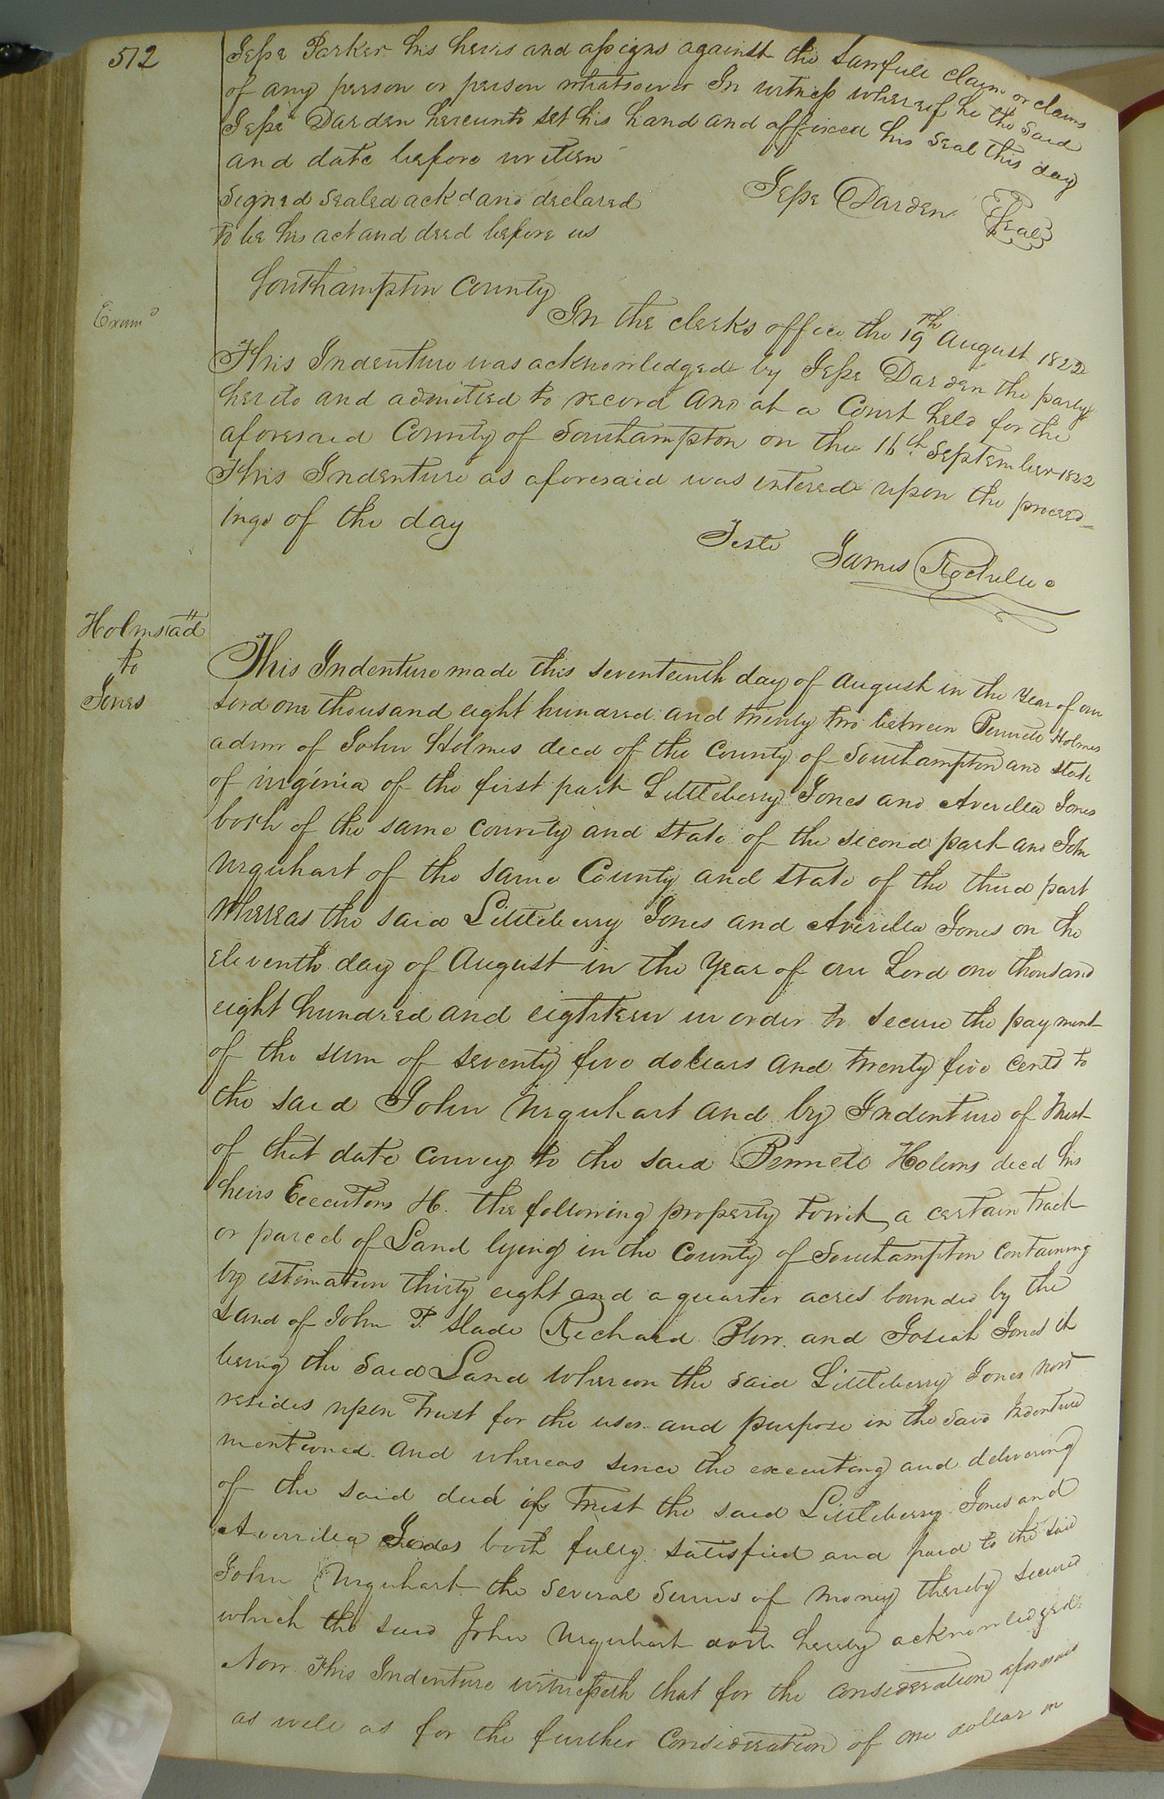 512
Jesse Parker his heirs and assigns against the Lawfull claym or claims
of any person or person whatsoever In witness whereof he the said
Jesse Darden hereunto set his hand and affixed his seal this day
and date before written
Signed sealed ackd and declared
to be his act and deed before us
Jesse Darden Seal
Southampton County
Examd
In the clerks office the 19th August 1822
This Indenture was acknowledged by Jesse Darden the party
hereto and admitted to record and at a Court held for the
aforesaid County of Southampton on the 16th September 1822
This Indenture as aforesaid was entered upon the proceed-
ings of the day
Teste James Rochelle
Holms ad
to
Jones
This Indenture made this seventeenth day of August in the Year of our
Lord one thousand eight hundred and twenty two between Bennett Holmes
admr of John Holmes decd of the County of Southampton and state
of virginia of the first part Littleberry Jones and Averilla Jones
both of the same county and state of the second part and John
Urquhart of the same County and state of the third part
Whereas the said Littleberry Jones and Averilla Jones on the
eleventh day of August in the Year of our Lord one thousand
eight hundred and eighteen in order to secure the payment
of the sum of seventy five dollars and twenty five cents to
the said John Urquhart and by Indenture of trust
of that date convey to the said Bennett Holms decd his
heirs Executors &c. the following property towit, a certain tract
or parcel of Land lying in the County of Southampton containing
by estimation thirty eight and a quarter acres bounded by the
Land of John T. Slade Richard Blow and Josiah Jones it
being the said Land whereon the said Littleberry Jones now
resides upon Trust for the uses and purpose in the said Indenture
mentioned. And whereas since the executing and delivering
of the said deed of Trust the said Littleberry Jones and
Averrilla Jones both fully satisfied and paid to the said
John Urquhart the several sums of money thereby secured
which the said John Urquhart doth hereby acknowledged
Now This Indenture witnesseth that for the consideration aforesaid
as well as for the further Consideration of one dollar in